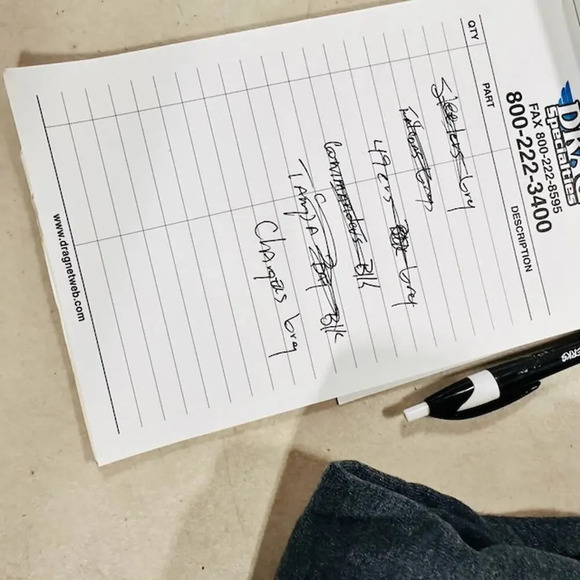 DRAG
Specialties
FAX 800-222-8595
800-222-3400
QTY PART DESCRIPTION
Steelers Gry
49ers Gry
Commanders Blk
Tampa Blk
Chargers Gry
www.dragnetweb.com